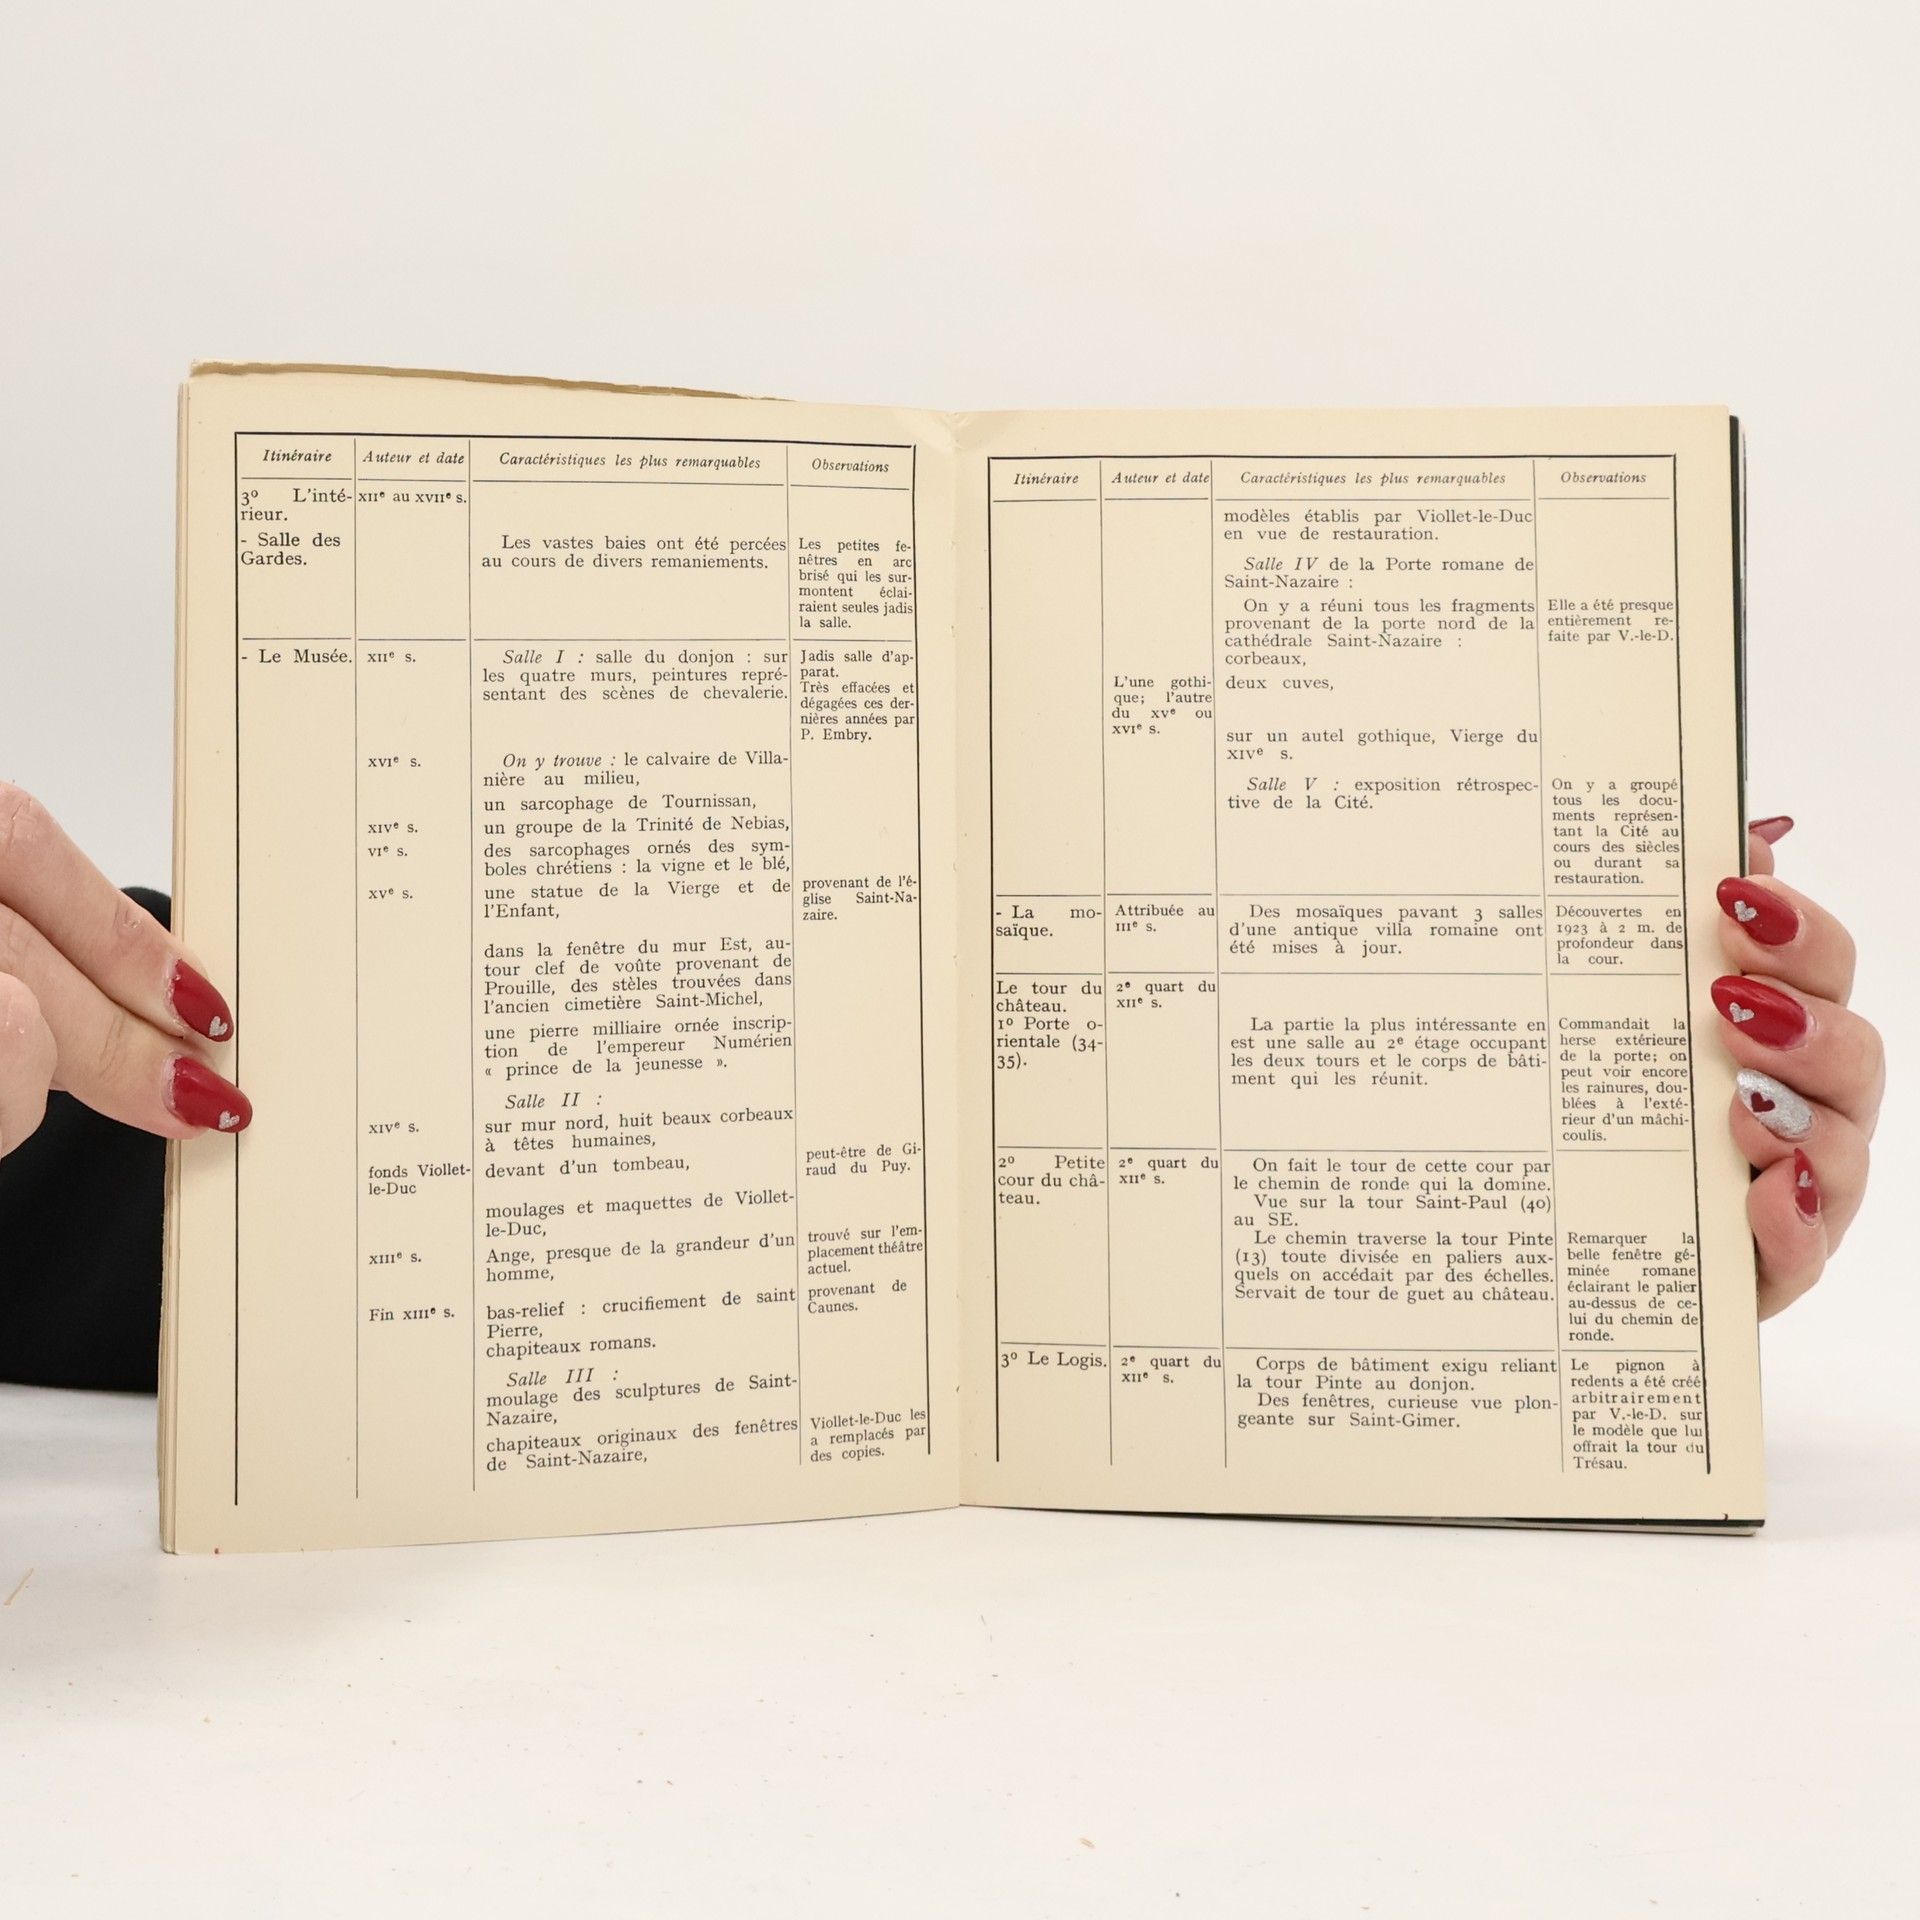 Itinéraire
Auteur et date
Caractéristiques les plus remarquables
Observations
3º L'inté-
rieur.
XIIe au XVIIe s.
- Salle des
Gardes.
Les vastes baies ont été percées
au cours de divers remaniements.
Les petites fe-
nêtres en arc
brisé qui les sur-
montent éclai-
raient seules jadis
la salle.
- Le Musée.
XIIe s.
Salle I : salle du donjon : sur
les quatre murs, peintures repré-
sentant des scènes de chevalerie.
Jadis salle d'ap-
parat.
Très effacées et
dégagées ces der-
nières années par
P. Embry.
XVIe s.
On y trouve : le calvaire de Villa-
nière au milieu,
un sarcophage de Tournissan,
XIVe s.
un groupe de la Trinité de Nebias,
VIe s.
des sarcophages ornés des sym-
boles chrétiens : la vigne et le blé,
XVe s.
une statue de la Vierge et de
l'Enfant,
provenant de l'é-
glise Saint-Na-
zaire.
dans la fenêtre du mur Est, au-
tour clef de voûte provenant de
Prouille, des stèles trouvées dans
l'ancien cimetière Saint-Michel,
une pierre milliaire ornée inscrip-
tion de l'empereur Numérien
« prince de la jeunesse ».
Salle II :
XIVe s.
sur mur nord, huit beaux corbeaux
à têtes humaines,
fonds Viollet-
le-Duc
devant d'un tombeau,
peut-être de Gi-
raud du Puy.
moulages et maquettes de Viollet-
le-Duc,
XIIIe s.
Ange, presque de la grandeur d'un
homme,
trouvé sur l'em-
placement théâtre
actuel.
Fin XIIIe s.
bas-relief : crucifiement de saint
Pierre,
chapiteaux romans.
provenant de
Caunes.
Salle III :
moulage des sculptures de Saint-
Nazaire,
chapiteaux originaux des fenêtres
de Saint-Nazaire,
Viollet-le-Duc les
a remplacés par
des copies.
Itinéraire
Auteur et date
Caractéristiques les plus remarquables
Observations
modèles établis par Viollet-le-Duc
en vue de restauration.
Salle IV de la Porte romane de
Saint-Nazaire :
On y a réuni tous les fragments
provenant de la porte nord de la
cathédrale Saint-Nazaire :
corbeaux,
Elle a été presque
entièrement re-
faite par V.-le-D.
L'une gothi-
que; l'autre
du XVe ou
XVIe s.
deux cuves,
sur un autel gothique, Vierge du
XIVe s.
Salle V : exposition rétrospec-
tive de la Cité.
On y a groupé
tous les docu-
ments représen-
tant la Cité au
cours des siècles
ou durant sa
restauration.
- La mo-
saïque.
Attribuée au
IIIe s.
Des mosaïques pavant 3 salles
d'une antique villa romaine ont
été mises à jour.
Découvertes en
1923 à 2 m. de
profondeur dans
la cour.
Le tour du
château.
2e quart du
XIIe s.
1º Porte o-
rientale (34-
35).
La partie la plus intéressante en
est une salle au 2e étage occupant
les deux tours et le corps de bâti-
ment qui les réunit.
Commandait la
herse extérieure
de la porte; on
peut voir encore
les rainures, dou-
blées à l'exté-
rieur d'un mâchi-
coulis.
2º Petite
cour du châ-
teau.
2e quart du
XIIe s.
On fait le tour de cette cour par
le chemin de ronde qui la domine.
Vue sur la tour Saint-Paul (40)
au SE.
Le chemin traverse la tour Pinte
(13) toute divisée en paliers aux-
quels on accédait par des échelles.
Servait de tour de guet au château.
Remarquer la
belle fenêtre gé-
minée romane
éclairant le palier
au-dessus de ce-
lui du chemin de
ronde.
3º Le Logis.
2e quart du
XIIe s.
Corps de bâtiment exigu reliant
la tour Pinte au donjon.
Des fenêtres, curieuse vue plon-
geante sur Saint-Gimer.
Le pignon à
redents a été créé
arbitrairement
par V.-le-D. sur
le modèle que lui
offrait la tour du
Trésau.